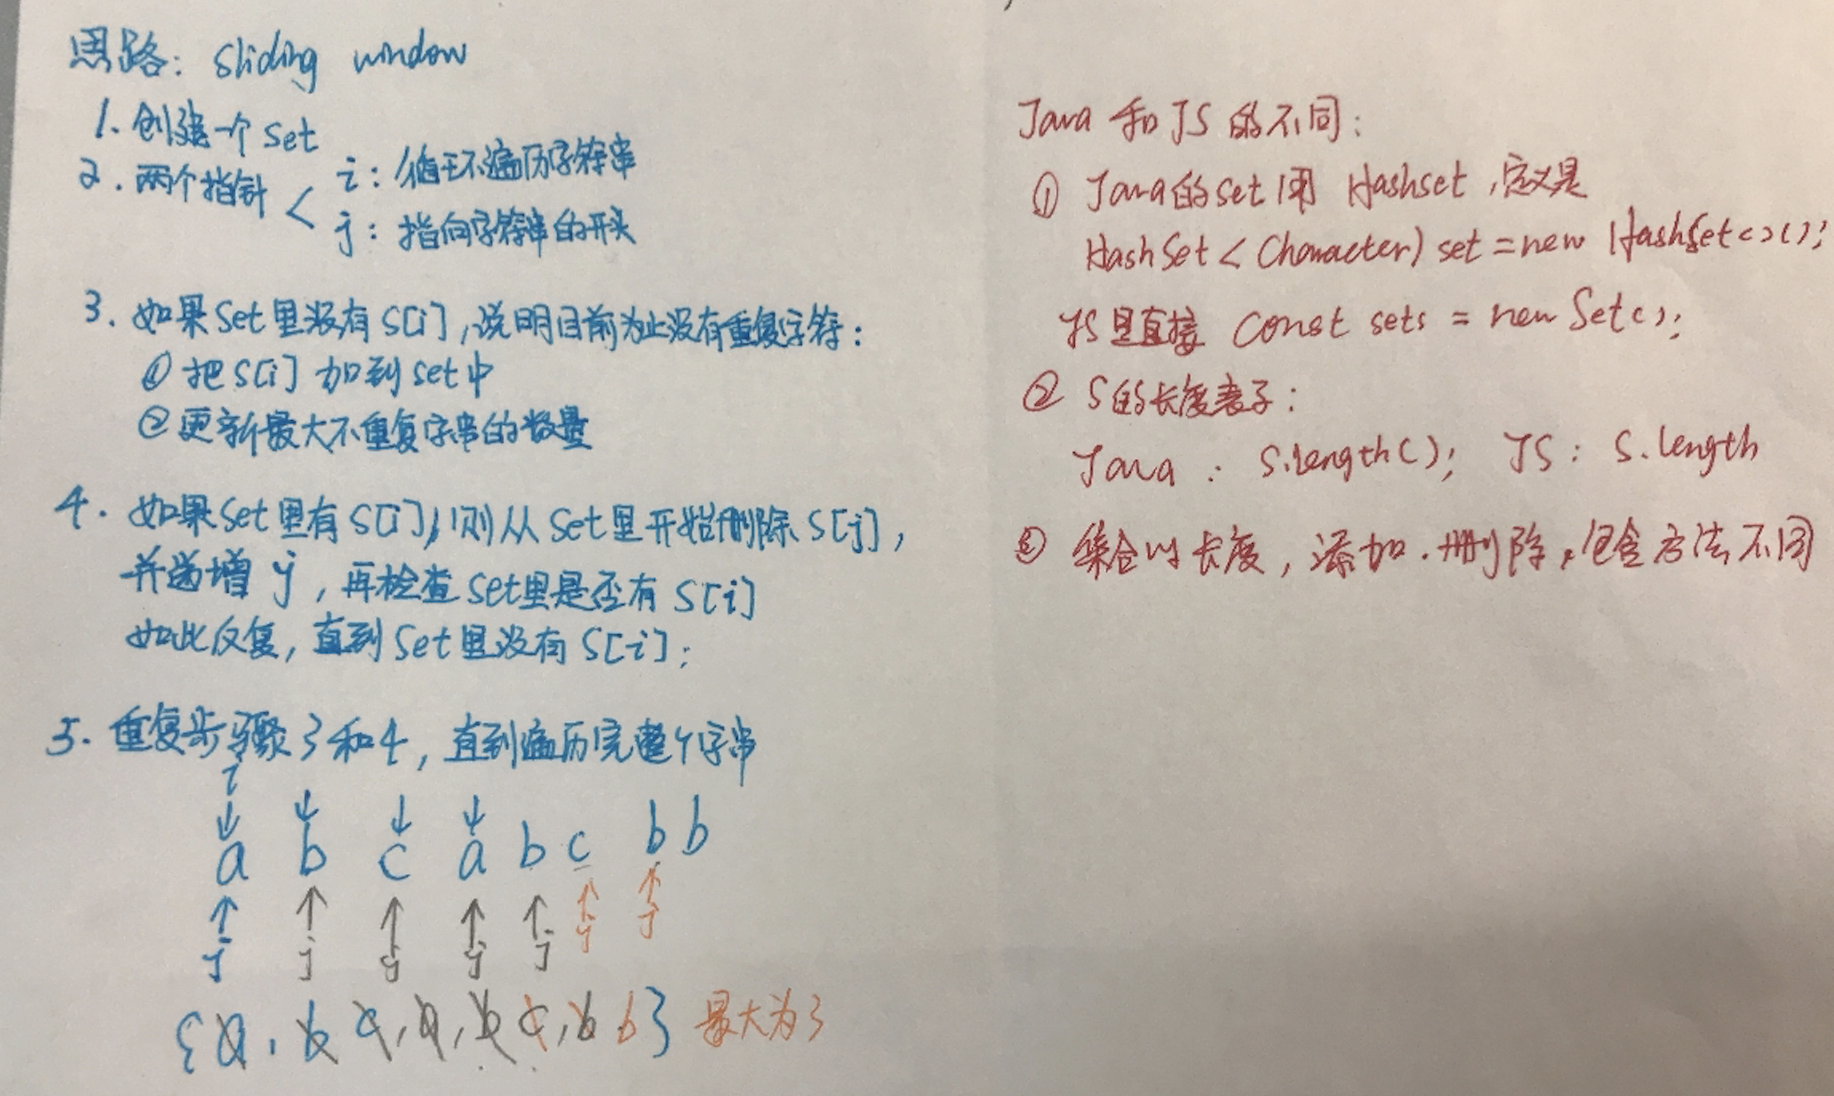 思路: sliding window
1. 创建一个 set
2. 两个指针 <
i: 循环遍历字符串
j: 指向字符串的开头
3. 如果set里没有s[i],说明目前为止没有重复字符:
① 把s[i] 加到set中
② 更新最大不重复字串的数量
4. 如果set里有s[i],则从set里开始删除s[j],
并递增 j, 再检查set里是否有s[i]
如此反复, 直到set里没有s[i];
5. 重复步骤3和4, 直到遍历完整个字串
i
↓ ↓ ↓ ↓
a b c a b c b b
↑ ↑ ↑ ↑ ↑ ↑ ↑
j j j j j j j
{a, b c, a, b c, b b} 最大为3
Java 和 JS 的不同:
① Java的set用 Hashset, 定义是
HashSet < Character) set = new HashSet<>();
JS里直接 const sets = new Set();
② S的长度表示:
Java : S.length(); JS: S.length
③ 集合的长度, 添加. 删除, 包含方法不同